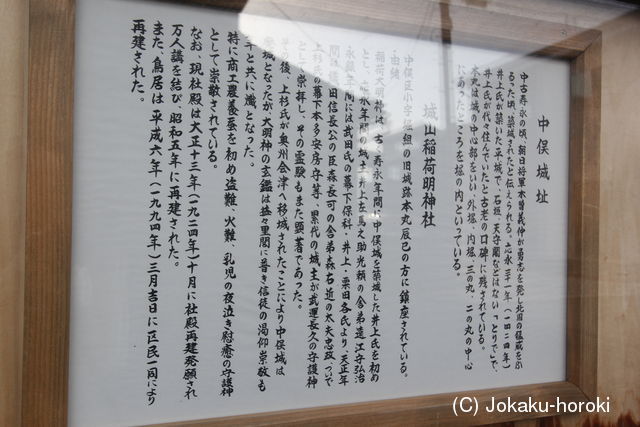 中俣城址
中古寿永の頃、朝日将軍木曽義仲が勇志を発し北国の猛威をふ
るった頃、築城されたと伝えられる。応永三十一年（一四二四年）
井上氏が築いた平城で、石垣、天守閣などはない「とりで」で、
井上氏が代々住んでいたと古老の口碑に残されている。
本丸は城の中心部をいい、外堀、内堀、三の丸、二の丸の中心
にあったところを堀の内といっている。
城山稲荷明神社
由緒
中俣区小字 組の旧城跡本丸辰巳の方に鎮座されている。
稲荷大明神は、古く寿永年間に中俣城を築城した井上氏を初め
とし、 永年間の城主井上左馬之助光頼の舎弟遠江守弘治
永禄年間には武田氏の幕下保科・井上・栗田各氏より、天正年
間は 田信長公の臣森長可の舎弟森右近の太夫忠政、ついで
上杉氏の幕下本多安房守等、累代の城主が武運長久の守護神
として崇拝し、その霊験もまた顕著であった。
その後、上杉氏が奥州会津へ移城されたことにより中俣城は
廃城となったが大明神の玄鑑は益々里閭に普き信徒の渇仰崇敬も
年と共に熾となった。
特に商工農養蚕を初め盗難、火難、乳児の夜泣き慰癒の守護神
として崇敬されている。
なお、現社殿は大正十三年（一九二四年）十月に社殿再建発願され
万人講を結び、昭和五年に再建された。
また、鳥居は平成六年（一九九四年）三月吉日に区民一同により
再建された。
(C) Jokaku-horoki